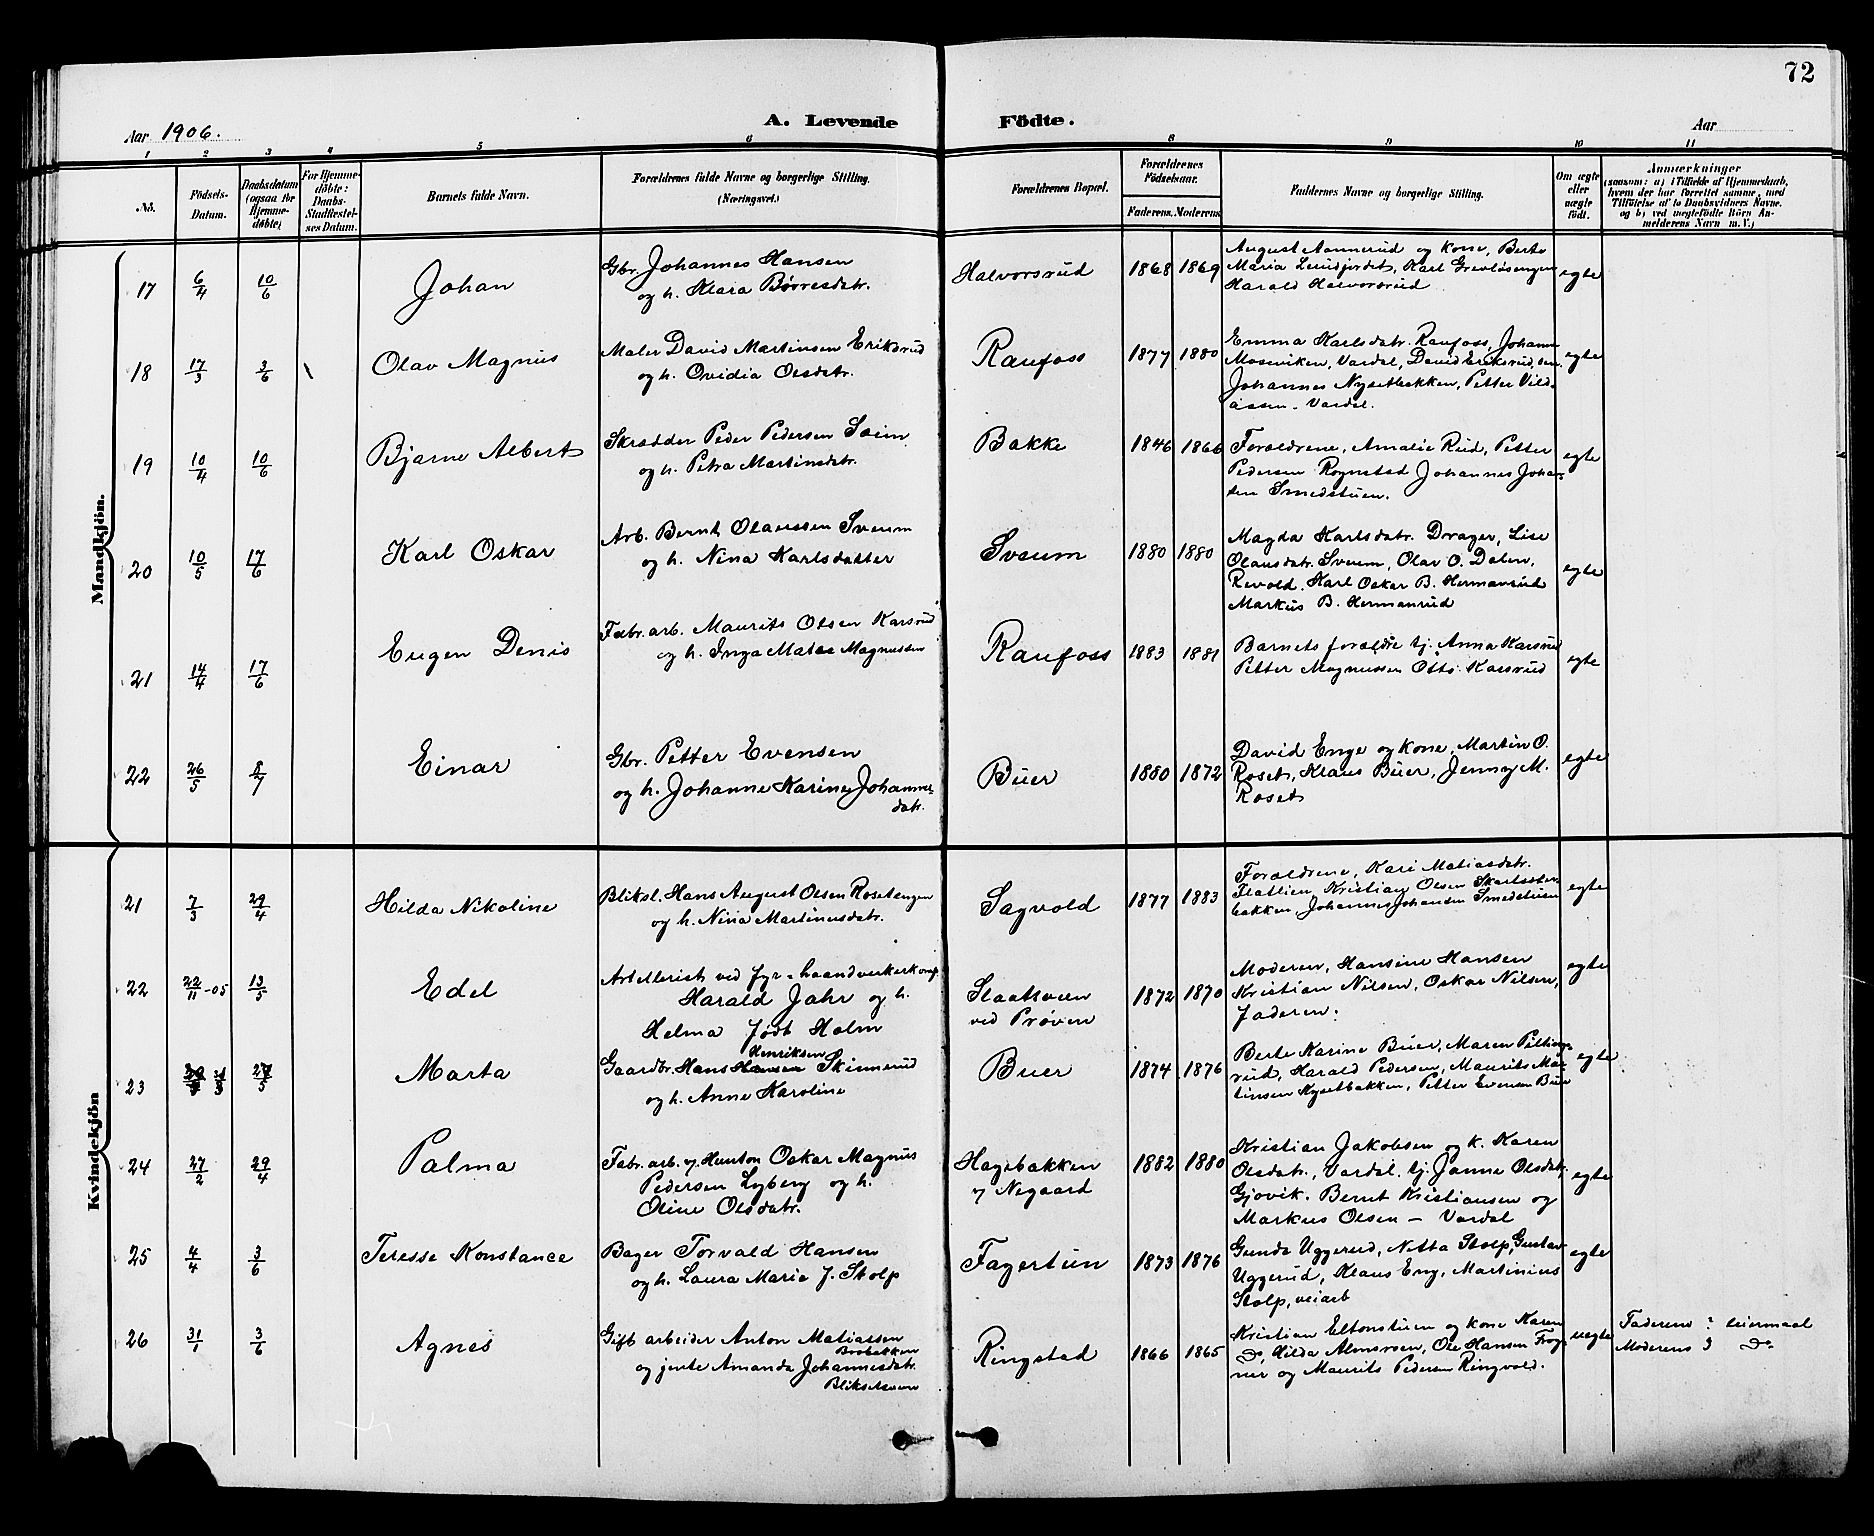 72
Aar 1906.
A. Levende Födte.
Aar
1 2 3 4 5 6 8 9 10 11
No.
Födsels-
Datum.
Daabsdatum
(ogsaa for
Hjemme-
döbte)
For Hjemme-
döbte:
Daabs-
Stadfæstel-
ses Datum.
Barnets fulde Navn.
Forældrenes fulde Navne og borgerlige Stilling.
(Næringsvei.)
Forældrenes Bopæl.
Forældrenes
Födselsaar.
Faderens. Moderens.
Faddernes Navne og borgerlige Stilling.
Om ægte
eller
uægte
födt.
Anmærkninger
(saasom: a) i Tilfælde af Hjemmedaab,
hvem der har forrettet samme, med
Tilföielse af to Daabsvidners Navne.
og b) ved uægtefödte Börn An-
melderens Navn m. V.)
Mandkjön.
17 6/4 10/6 Johan
Gbr. Johannes Hansen
og h. Klara Børresdatr.
Halvorsrud 1868 1869
August Aannerud og kone, Berte
Maria Lundjordet, Karl Grevløsengen
Harald Halvorsrud
egte
18 17/3 3/6 \ Olav Magnus
Maler David Martinsen Eriksrud
og h. Ovidia Olsdatr.
Raufoss 1877 1880
Emma Karlsdatr. Raufoss, Johann
Moseviken, Vardal, David Eriksrud, sen.
Johannes Nysetbakken, Petter Vild-
aasen. Vardal.
egte
19 10/4 10/6 Bjarne Albert
Skrædder Peder Pedersen Sveim
og h. Petra Martinsdatr.
Bakke 1846 1866
Forældrene, Amalie Rud, Petter
Pedersen Rognstad Johannes Johan-
sen Smedstuen.
egte
20 10/5 17/6 Karl Oskar
Arb. Bernt Olaussen Sveum
og h. Nina Karlsdatter
Sveum 1880 1880
Magda Karlsdatr. Drager, Lise
Olausdatr. Sveum, Olav O. Dalen,
Revold. Karl Oskar B. Hermanrud
Markus B. Hermanrud
egte
21 14/4 17/6 Eugen Denis
Fabr. arb. Maurits Olsen Karsrud
og h. Inga Matea Magnussen
Raufoss 1883 1881
Barnets forældre tj. Anna Karsrud
Petter Magnussen Otto Karsrud
egte
22 26/5 8/7 Einar
Gbr. Petter Evensen
og h. Johanne Karine Johannes-
datr.
Buer 1880 1872
David Enge og kone, Martin O.
Roset, Klaus Buer, Jenny M.
Roset
egte
Kvindekjön
21 7/3 29/4 Hilda Nikoline
Bliksl. Hans August Olsen Rosetengen
og h. Nina Martinusdatr.
Sagvold 1877 1883
Forældrene, Kari Matiasdatr.
Kristian Olsen
bakken, Johannes Johansen Smedstuen
egte
22 22/11-05 13/5 Edel
Artillerist ved fyr-haandverkerkomp
Harald Jahr og h.
Helma født Holm
Staatsveen
ved Prøven
1872 1870
Moderen, Hansine Hansen
Kristian Nilsen, Oskar Nilsen,
Faderen.
egte
23 27/5 Marta
Henriksen
Gaardbr. Hans Hansen Skinnerud
og h. Anne Karoline
Buer 1874 1876
Berte Karine Buer, Maren Pilling-
rud, Harald Pedersen, Maurits Mar-
tinsen Nysetbakken, Petter Evensen Buer
egte
24 27/2 29/4 Palma
Fabr. arb. v/ Hunton Oskar Magnus
Pedersen Lyberg og h.
Oline Olsdatr.
Hagebakken
v/ Negaard
1882 1880
Kristian Jakobsen og k. Karen
Olsdatr., Vardal. tj. Janna Olsdatr.
Gjøvik. Bernt Kristiansen og
Markus Olsen – Vardal
egte
25 4/4 3/6 Teresse Konstance
Bager Torvald Hansen
og h. Laura Marie f. Stolp
Fagertun 1873 1876
Gunda Uggerud, Netta Stolp, Gustav
Uggerud, Klaus Eng, Martinius
Stolp, veiarb
egte
26 31/1 3/6 Agnes
Gift arbeider Anton Matiassen
Brobakken
og jente Amanda Johannesdatr.
Blikset
Ringstad 1866 1865
Kristian Eltonstuen og kone Karen
Do, Hilda Almsveen, Ole Hansen Frog-
ner og Maurits Pedersen Ringvold.
uegte
Faderens 2 leiermaal
Moderens 3 Do